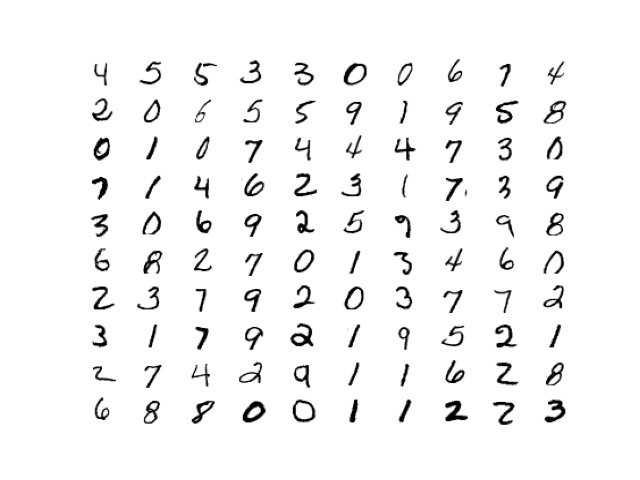 4 5 5 3 3 0 0 6 7 4
2 0 6 5 5 9 1 9 5 8
0 1 0 7 4 4 4 7 3 0
7 1 4 6 2 3 1 7 3 9
3 0 6 9 2 5 9 3 9 8
6 8 2 7 0 1 3 4 6 0
2 3 7 9 2 0 3 7 7 2
3 1 7 9 2 1 9 5 2 1
2 7 4 2 9 1 1 6 2 8
6 8 8 0 0 1 1 2 2 3